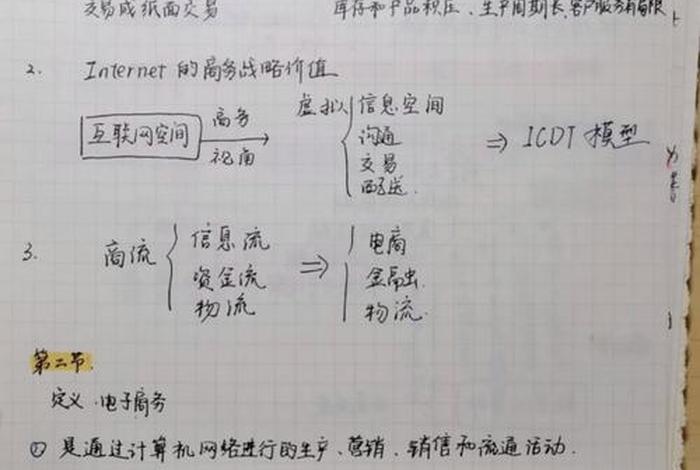 交易或纸面交易 库存和产品积压、生产周期长、客户服务有局限
2. Internet 的商务战略价值
互联网空间 商务视角 虚拟 信息空间 沟通 交易 配送 ⇒ ICDT 模型
3. 商流 信息流 资金流 物流 ⇒ 电商 金融 物流
第二节.
定义.电子商务
① 是通过计算机网络进行的生产、营销、销信和流通活动.